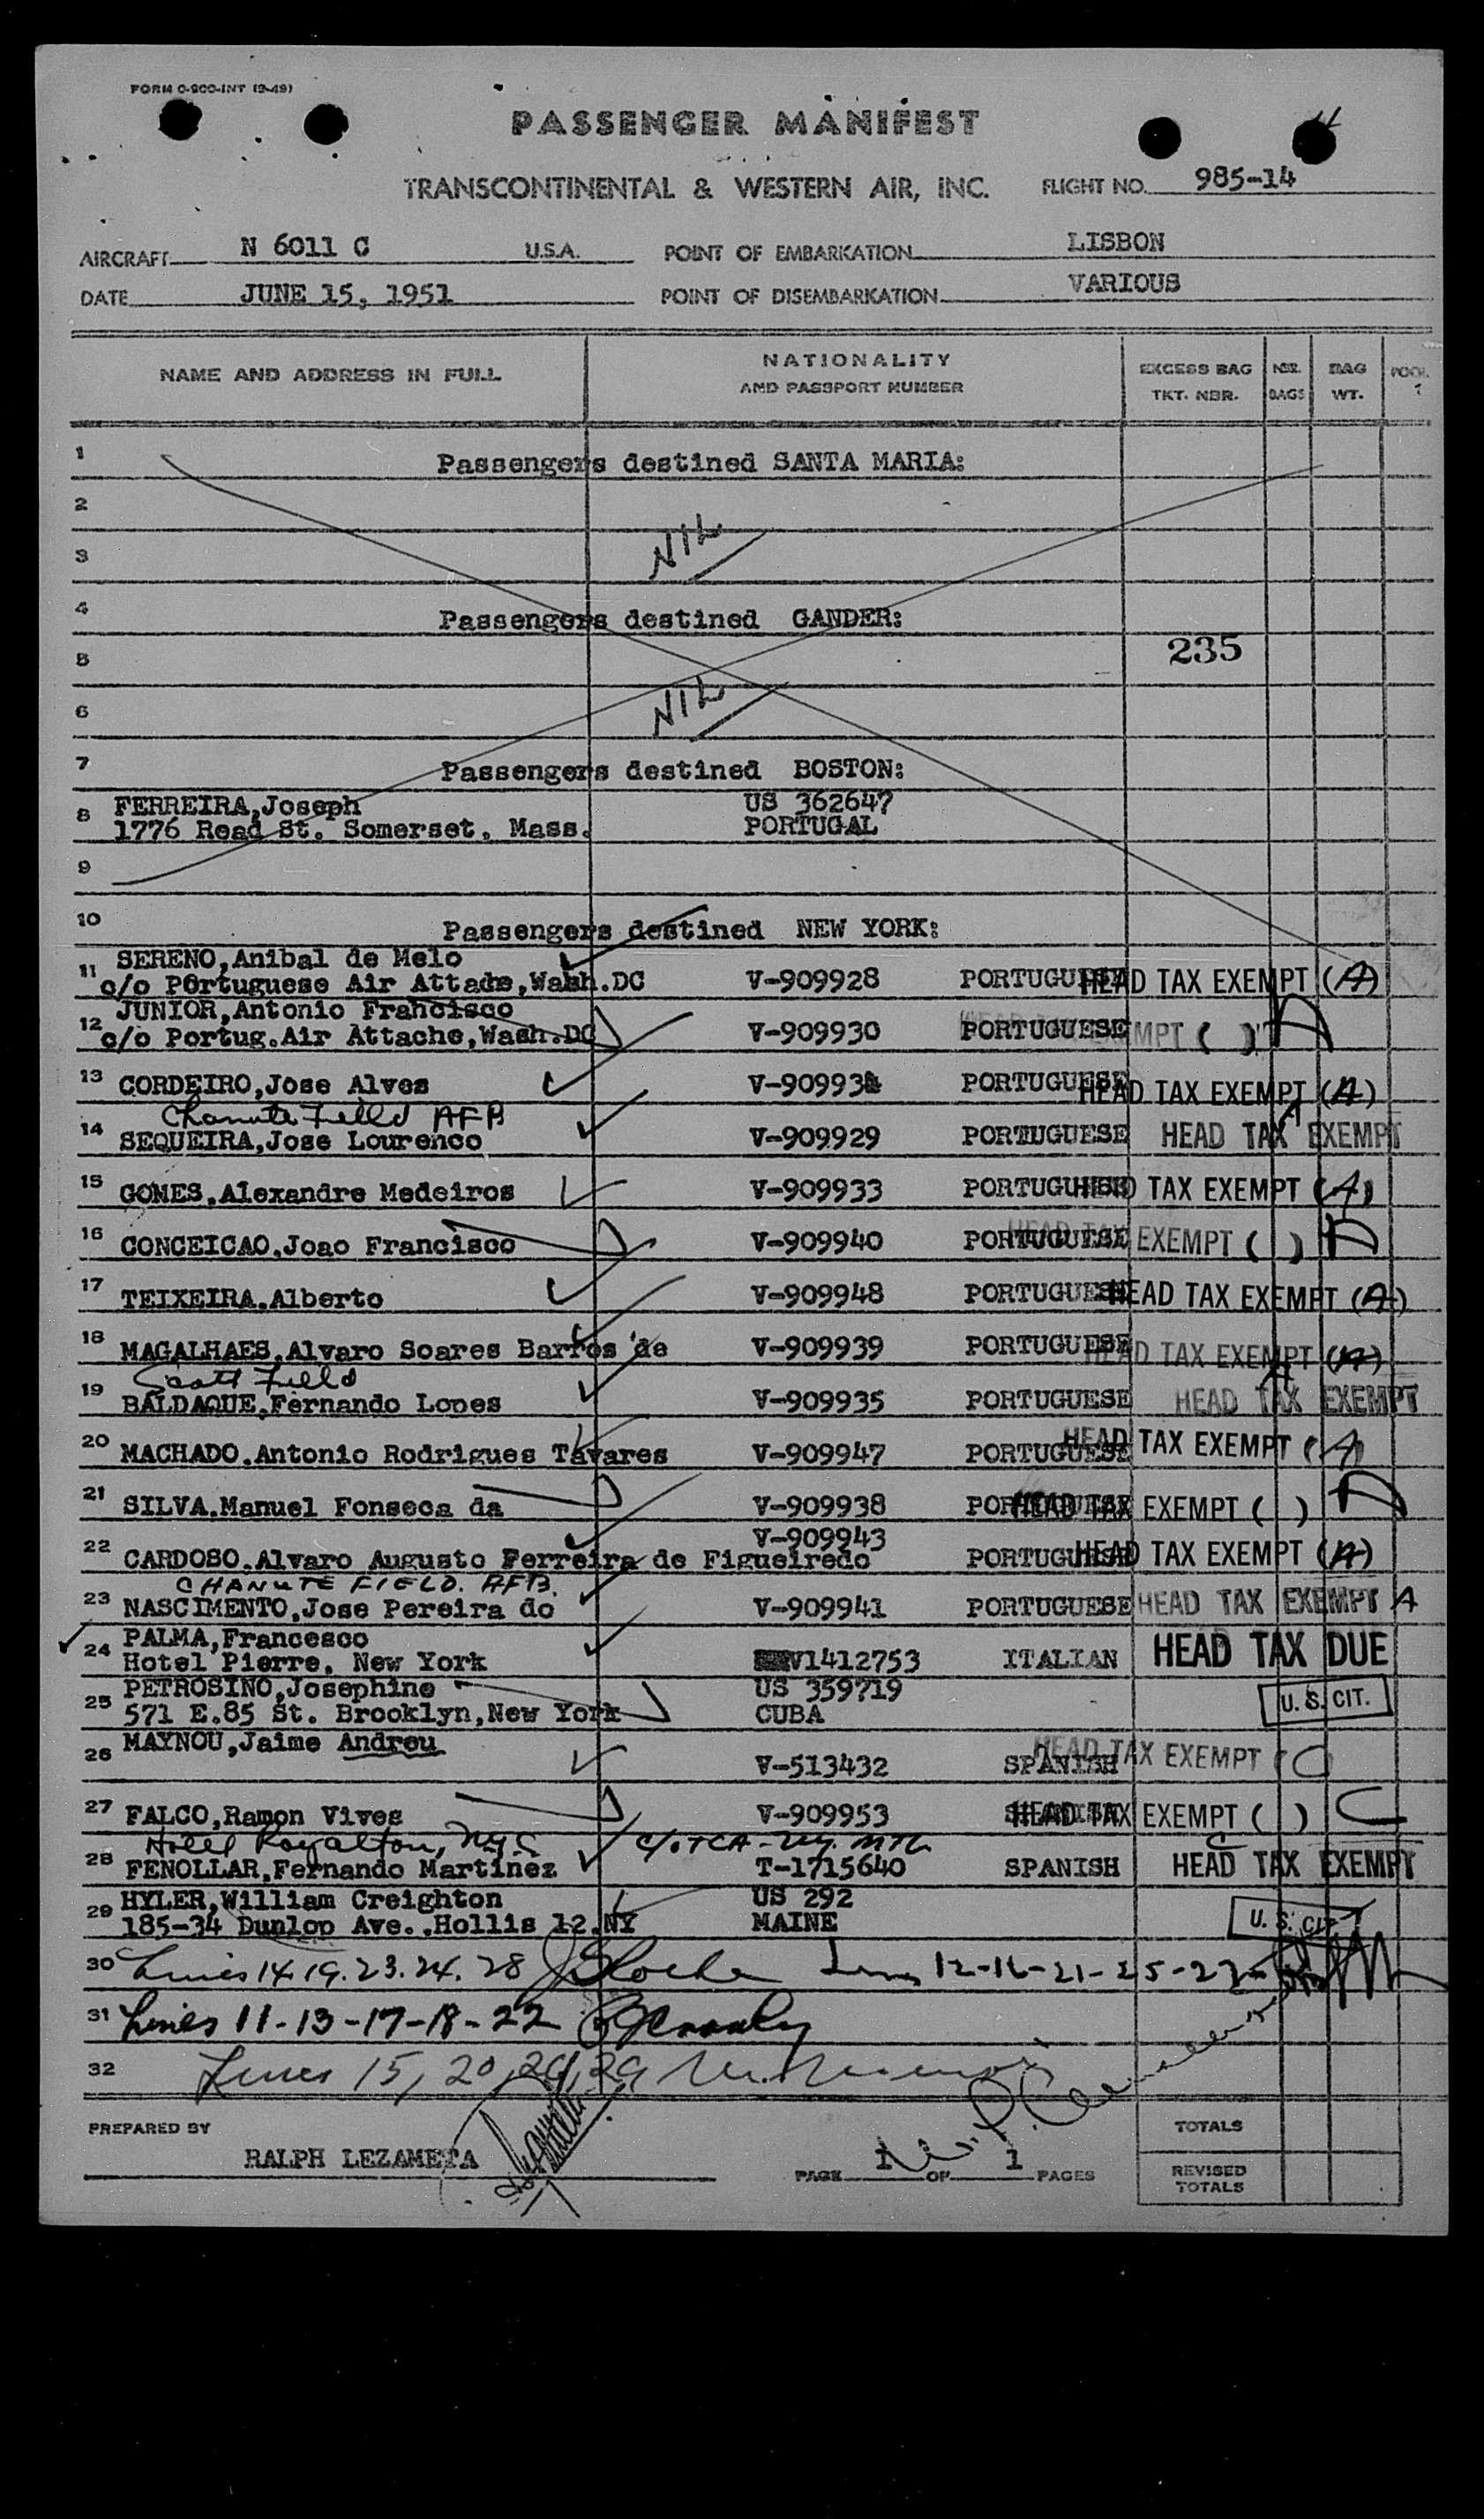 FORM O-900-INT (9-49)
PASSENGER MANIFEST
TRANSCONTINENTAL & WESTERN AIR, INC. FLIGHT NO. 985-14
AIRCRAFT N 6011 C U.S.A. POINT OF EMBARKATION LISBON
DATE JUNE 15, 1951 POINT OF DISEMBARKATION VARIOUS
NAME AND ADDRESS IN FULL NATIONALITY AND PASSPORT NUMBER EXCESS BAG TKT. NBR. NBR. BAGS BAG WT. POOL ?
1 Passengers destined SANTA MARIA:
2
3 NIL
4 Passengers destined GANDER:
5 235
6 NIL
7 Passengers destined BOSTON:
8 FERREIRA,Joseph US 362647
1776 Read St. Somerset, Mass. PORTUGAL
9
10 Passengers destined NEW YORK:
11 SERENO,Anibal de Melo
c/o POrtuguese Air Attade,Wash.DC V-909928 PORTUGUESE HEAD TAX EXEMPT (A)
12 JUNIOR,Antonio Francisco
c/o Portug.Air Attache,Wash.DC V-909930 PORTUGUESE HEAD TAX EXEMPT ( ) A
13 CORDEIRO,Jose Alves V-90993 PORTUGUESE HEAD TAX EXEMPT (A)
Chanute Field AFB
14 SEQUEIRA,Jose Lourenco V-909929 PORTUGUESE HEAD TAX EXEMPT A
15 GOMES,Alexandre Medeiros V-909933 PORTUGUESE HEAD TAX EXEMPT (A)
16 CONCEICAO,Joao Francisco V-909940 PORTUGUESE HEAD TAX EXEMPT ( ) A
17 TEIXEIRA,Alberto V-909948 PORTUGUESE HEAD TAX EXEMPT (A)
18 MAGALHAES,Alvaro Soares Barros de V-909939 PORTUGUESE HEAD TAX EXEMPT (A)
Scott Field
19 BALDAQUE,Fernando Lopes V-909935 PORTUGUESE HEAD TAX EXEMPT A
20 MACHADO,Antonio Rodrigues Tavares V-909947 PORTUGUESE HEAD TAX EXEMPT (A)
21 SILVA,Manuel Fonseca da V-909938 PORTUGUESE HEAD TAX EXEMPT ( ) A
V-909943
22 CARDOSO,Alvaro Augusto Ferreira de Figueiredo PORTUGUESE HEAD TAX EXEMPT (A)
CHANUTE FIELD. AFB.
23 NASCIMENTO,Jose Pereira do V-909941 PORTUGUESE HEAD TAX EXEMPT A
24 PALMA,Francesco
Hotel Pierre, New York V1412753 ITALIAN HEAD TAX DUE
25 PETROSINO,Josephine US 359719
571 E.85 St. Brooklyn,New York CUBA U.S. CIT.
26 MAYNOU,Jaime Andreu
V-513432 SPANISH HEAD TAX EXEMPT (C)
27 FALCO,Ramon Vives V-909953 SPANISH HEAD TAX EXEMPT ( ) C
Hotel Royalton, NYC c/o TCA
28 FENOLLAR,Fernando Martinez T-1715640 SPANISH HEAD TAX EXEMPT C
29 HYLER,William Creighton US 292
185-34 Dunlop Ave.,Hollis 12,NY MAINE U.S. CIT
30 Lines 14.19.23.24.28 Lines 12-16-21-25-27-
31 Lines 11-13-17-18-22
32 Lines 15, 20,
PREPARED BY RALPH LEZAMETA PAGE 1 OF 1 PAGES
TOTALS
REVISED TOTALS